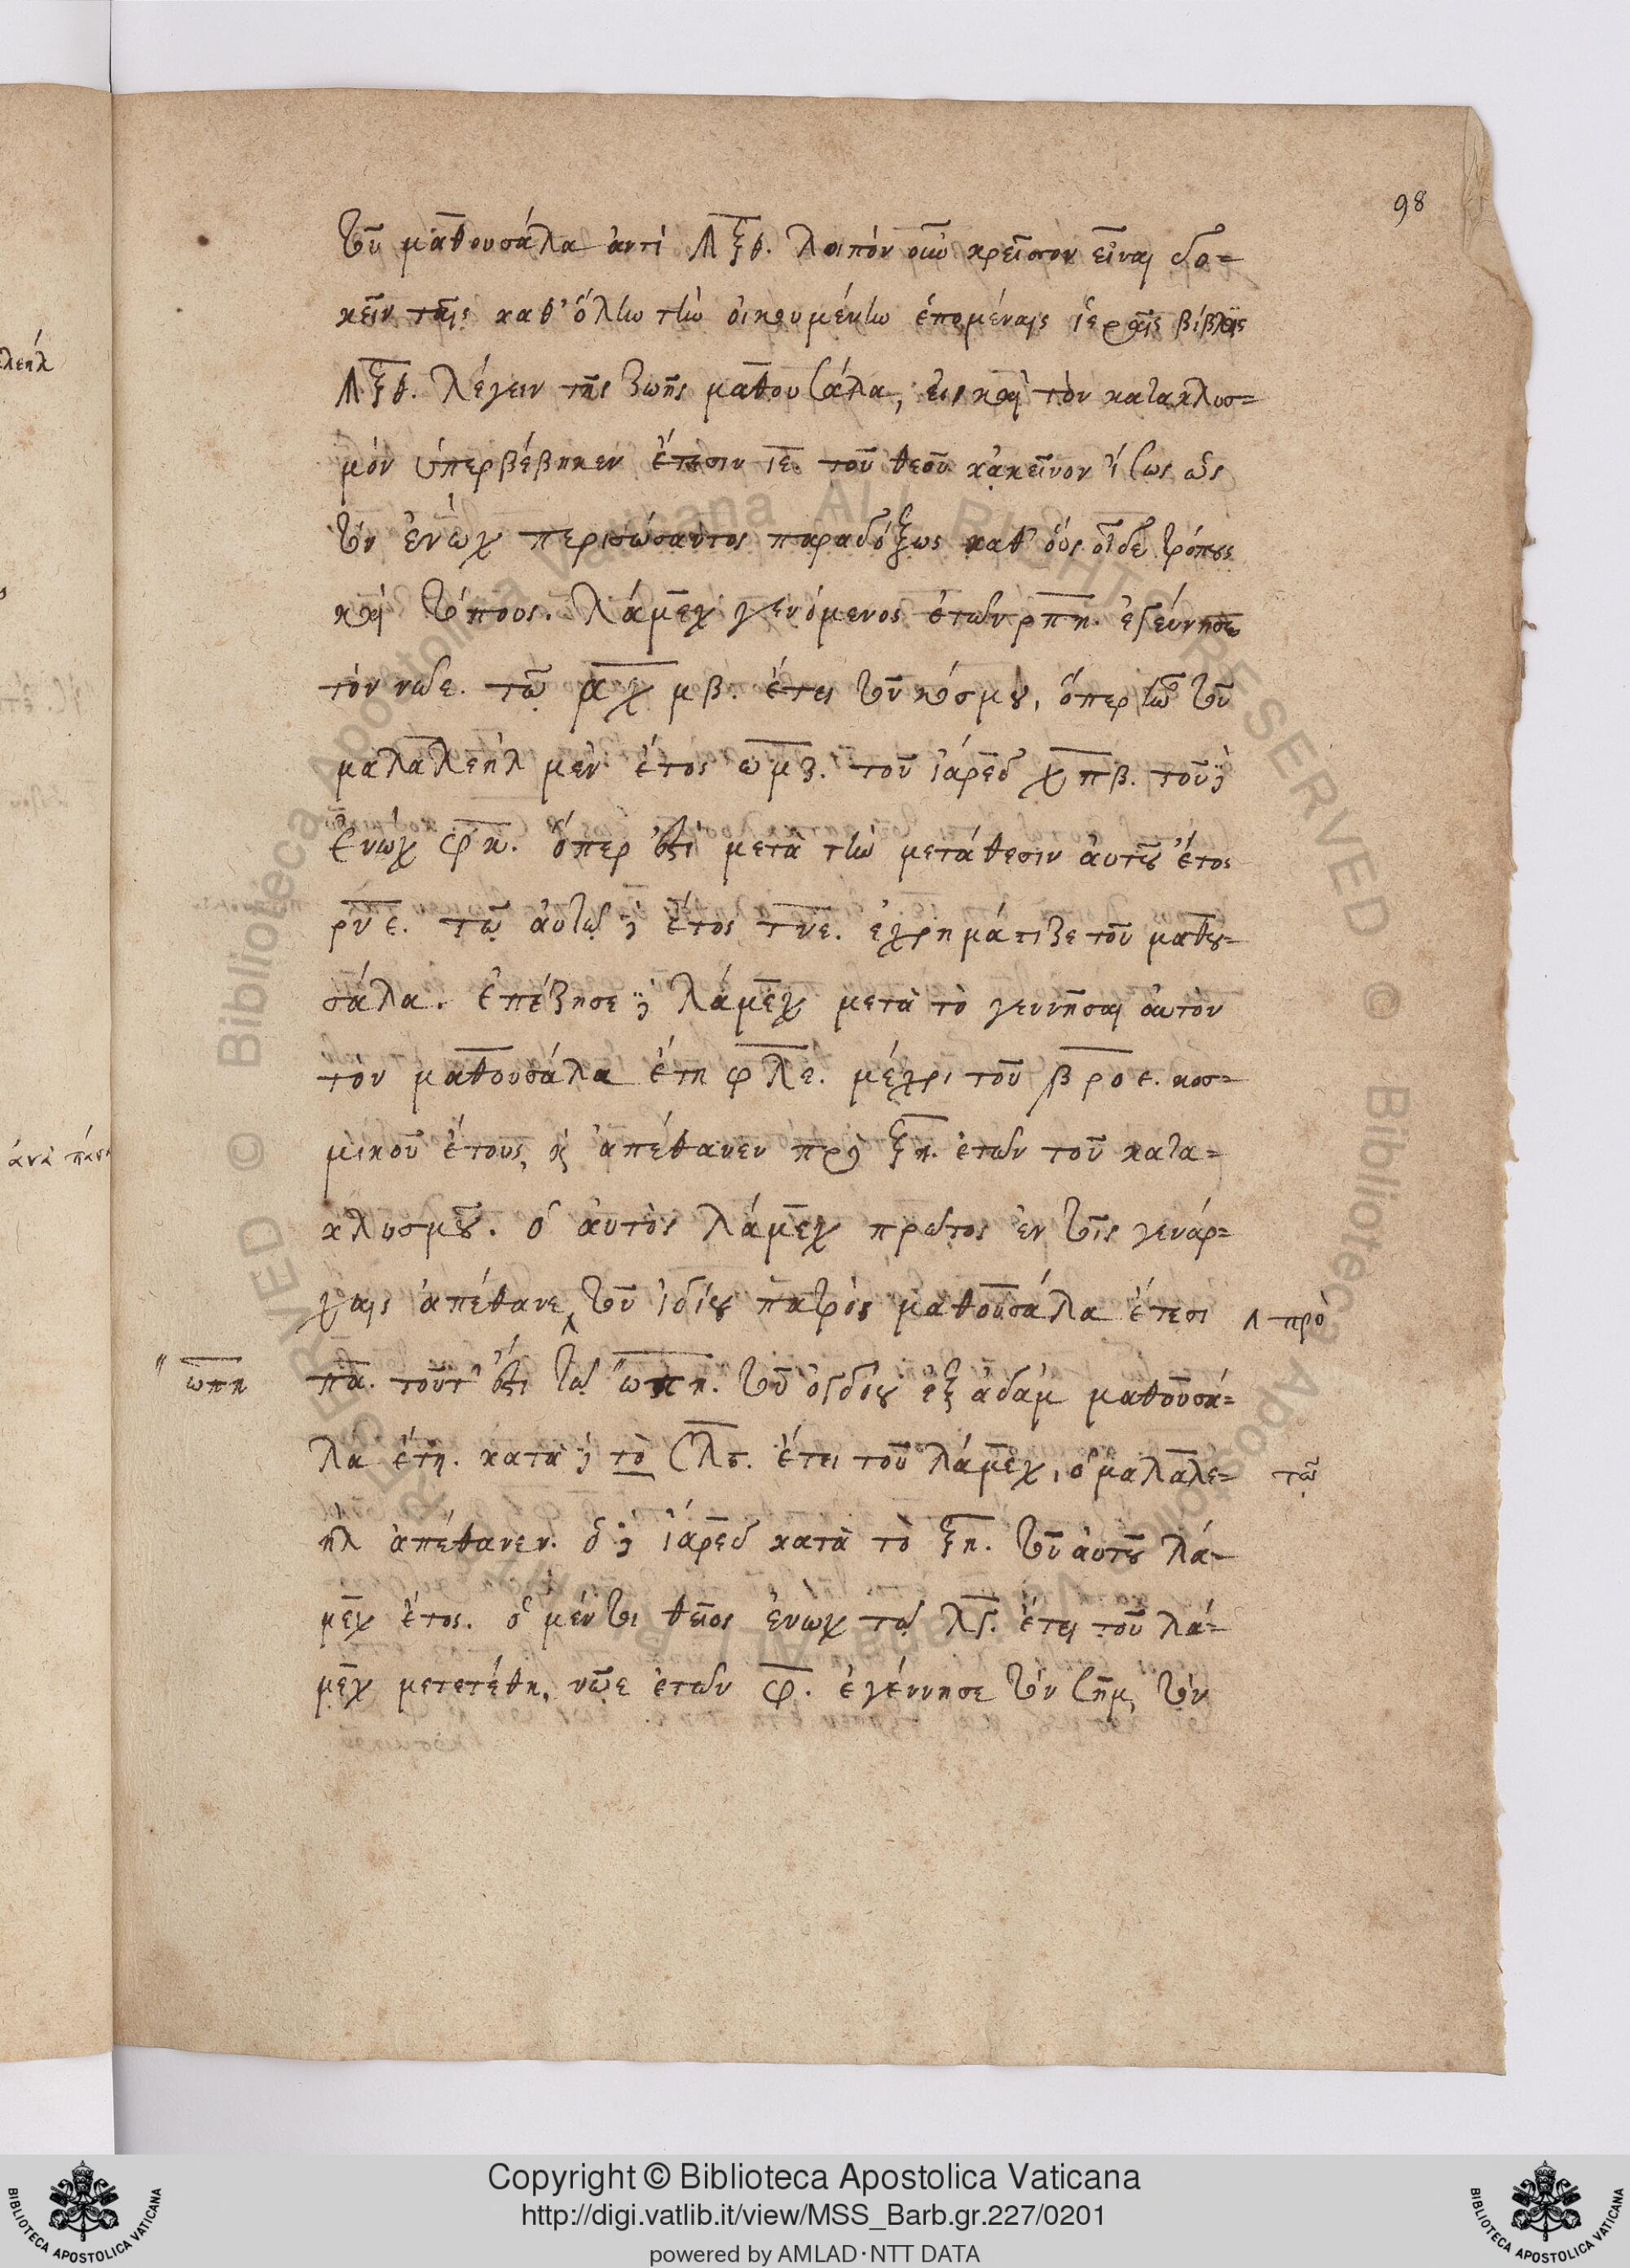 98
τοῦ μαθουσάλα ἀντὶ Ϡξθ. λοιπὸν οὖν κρεῖττον εἶναι δο=
κεῖν ταῖς καθ' ὅλην τὴν οἰκουμένην ἑπομέναις ἱεραῖς βίβλοις
Ϡξθ. λέγειν τῆς ζωῆς μαθουσάλα, εἰ καὶ τὸν κατακλυσ=
μὸν ὑπερβέβηκεν ἔτεσιν ιε. τοῦ θεοῦ κἀκεῖνον ἴσως ὡς
τὸν ἐνὼχ περισώσαντος παραδόξως καθ' οὓς οἶδε τρόπους
καὶ τόπους. λάμεχ γενόμενος ἐτῶν ρπη. ἐγέννησε
τὸν νῶε. τῷ αχμβ. ἔτει τοῦ κόσμου, ὅπερ ἦν τοῦ
μαλαλεὴλ μὲν ἔτος ωμζ. τοῦ ἰάρεδ χπβ. τοῦ δὲ
ἐνὼχ φκ. ὅπερ ἐστὶ μετὰ τὴν μετάθεσιν αὐτοῦ ἔτος
ρνε. τῷ αὐτῷ δὲ ἔτος τνε. ἐχρημάτιζε τοῦ μαθου=
σάλα. ἐπέζησε δὲ λάμεχ μετὰ τὸ γεννῆσαι αὐτὸν
τὸν μαθουσάλα ἔτη φλε. μέχρι τοῦ βροε. κοσ=
μικοῦ ἔτους, καὶ ἀπέθανεν πρὸ ξη. ἐτῶν τοῦ κατα=
κλυσμοῦ. ὁ αὐτὸς λάμεχ πρῶτος ἐν τοῖς γενάρ=
χαις ἀπέθανε ‸ τοῦ ἰδίου πατρὸς μαθουσάλα ἔτεσι ‸ πρὸ
" ωπη πα. τοῦτ' ἐστι τῷ " ωπη. τοῦ ὀγδόου ἐξ ἀδὰμ μαθουσά=
λα ἔτη. κατὰ δὲ τὸ σλϛ. ἔτει τοῦ λάμεχ, ὁ μαλαλε= τῷ
ὴλ ἀπέθανεν. ὁ δὲ ἰάρεδ κατὰ τὸ ξη. τοῦ αὐτοῦ λά=
μεχ ἔτος. ὁ μέντοι θεῖος ἐνὼχ τῷ λγ. ἔτει τοῦ λά=
μεχ μετετέθη, νῶε ἐτῶν φ. ἐγέννησε τὸν σὴμ, τὸν
Copyright © Biblioteca Apostolica Vaticana
http://digi.vatlib.it/view/MSS_Barb.gr.227/0201
powered by AMLAD·NTT DATA
BIBLIOTECA APOSTOLICA VATICANA
BIBLIOTECA APOSTOLICA VATICANA